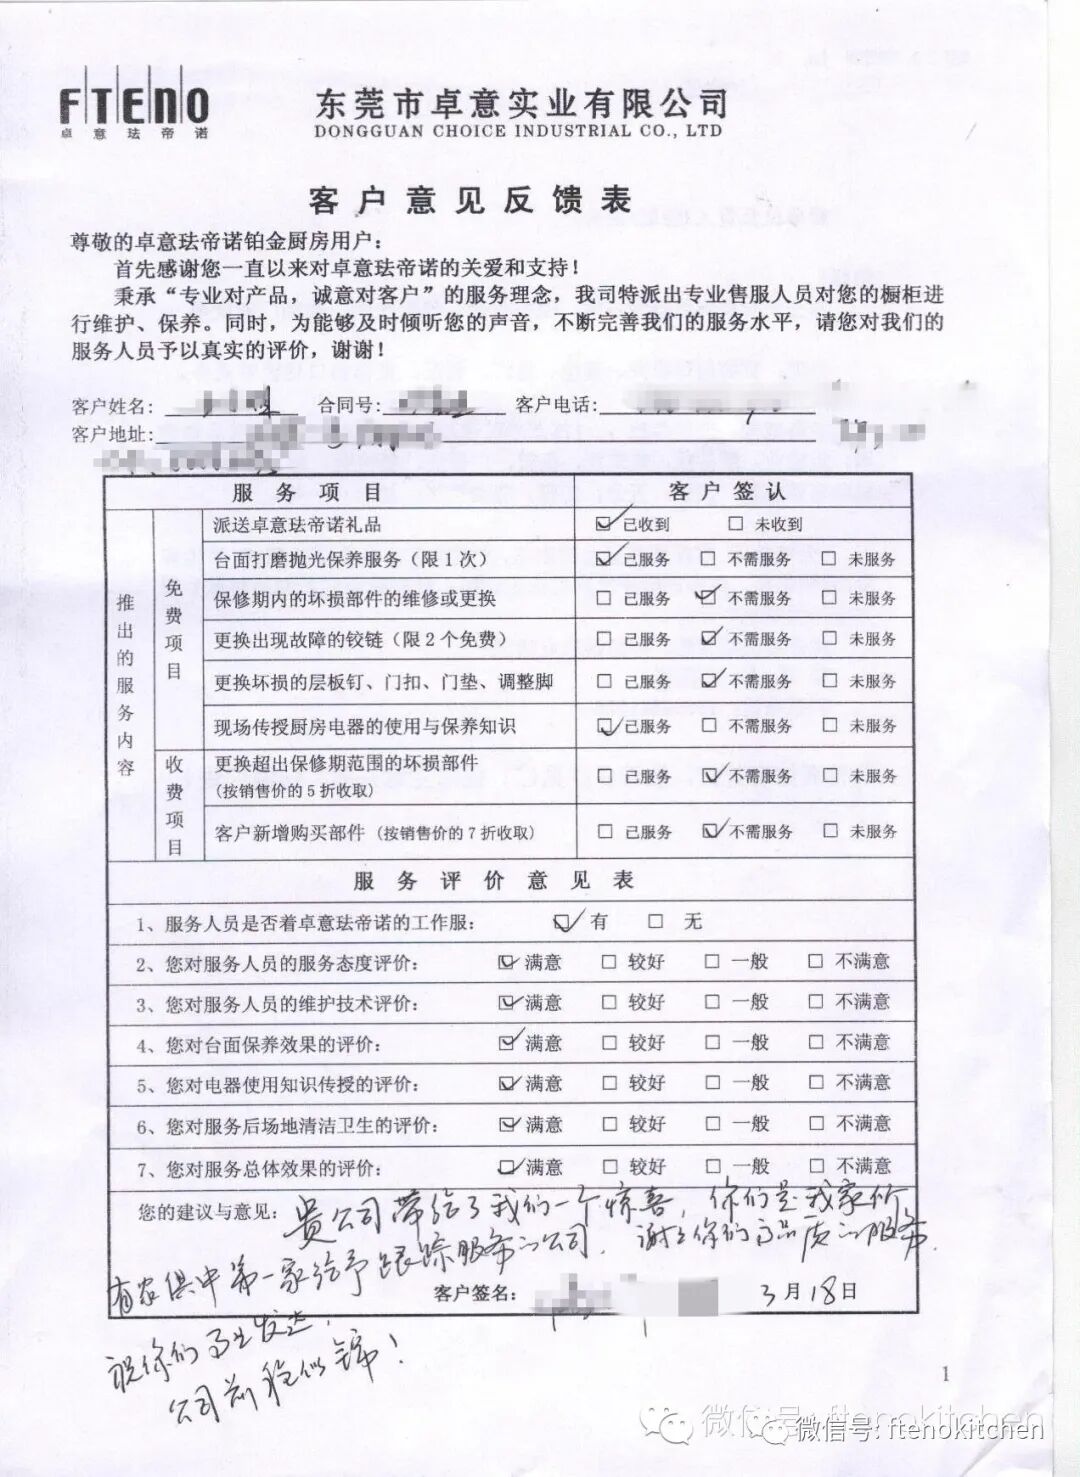 FTENO
卓意珐帝诺
东莞市卓意实业有限公司
DONGGUAN CHOICE INDUSTRIAL CO., LTD
客户意见反馈表
尊敬的卓意珐帝诺铂金厨房用户:
首先感谢您一直以来对卓意珐帝诺的关爱和支持!
秉承“专业对产品，诚意对客户”的服务理念，我司特派出专业售服人员对您的橱柜进
行维护、保养。同时，为能够及时倾听您的声音，不断完善我们的服务水平，请您对我们的
服务人员予以真实的评价，谢谢!
客户姓名: 合同号: 客户电话:
客户地址:
服务项目 客户签认
推出的服务内容
免费项目
派送卓意珐帝诺礼品 ☑已收到 □未收到
台面打磨抛光保养服务（限1次） ☑已服务 □不需服务 □未服务
保修期内的坏损部件的维修或更换 □已服务 ☑不需服务 □未服务
更换出现故障的铰链（限2个免费） □已服务 ☑不需服务 □未服务
更换坏损的层板钉、门扣、门垫、调整脚 □已服务 ☑不需服务 □未服务
现场传授厨房电器的使用与保养知识 ☑已服务 □不需服务 □未服务
收费项目
更换超出保修期范围的坏损部件 □已服务 ☑不需服务 □未服务
(按销售价的5折收取)
客户新增购买部件（按销售价的7折收取） □已服务 ☑不需服务 □未服务
服务评价意见表
1、服务人员是否着卓意珐帝诺的工作服: ☑有 □无
2、您对服务人员的服务态度评价: ☑满意 □较好 □一般 □不满意
3、您对服务人员的维护技术评价: ☑满意 □较好 □一般 □不满意
4、您对台面保养效果的评价: ☑满意 □较好 □一般 □不满意
5、您对电器使用知识传授的评价: ☑满意 □较好 □一般 □不满意
6、您对服务后场地清洁卫生的评价: ☑满意 □较好 □一般 □不满意
7、您对服务总体效果的评价: ☑满意 □较好 □一般 □不满意
您的建议与意见: 贵公司带给了我们一个惊喜，你们是我家所
有家俱中第一家给予跟踪服务的公司，谢谢你们高品质的服务.
客户签名: 3月18日
祝你们事业发达，
公司前程似锦!
1
微信号: ftenokitchen
微信号: ftenokitchen